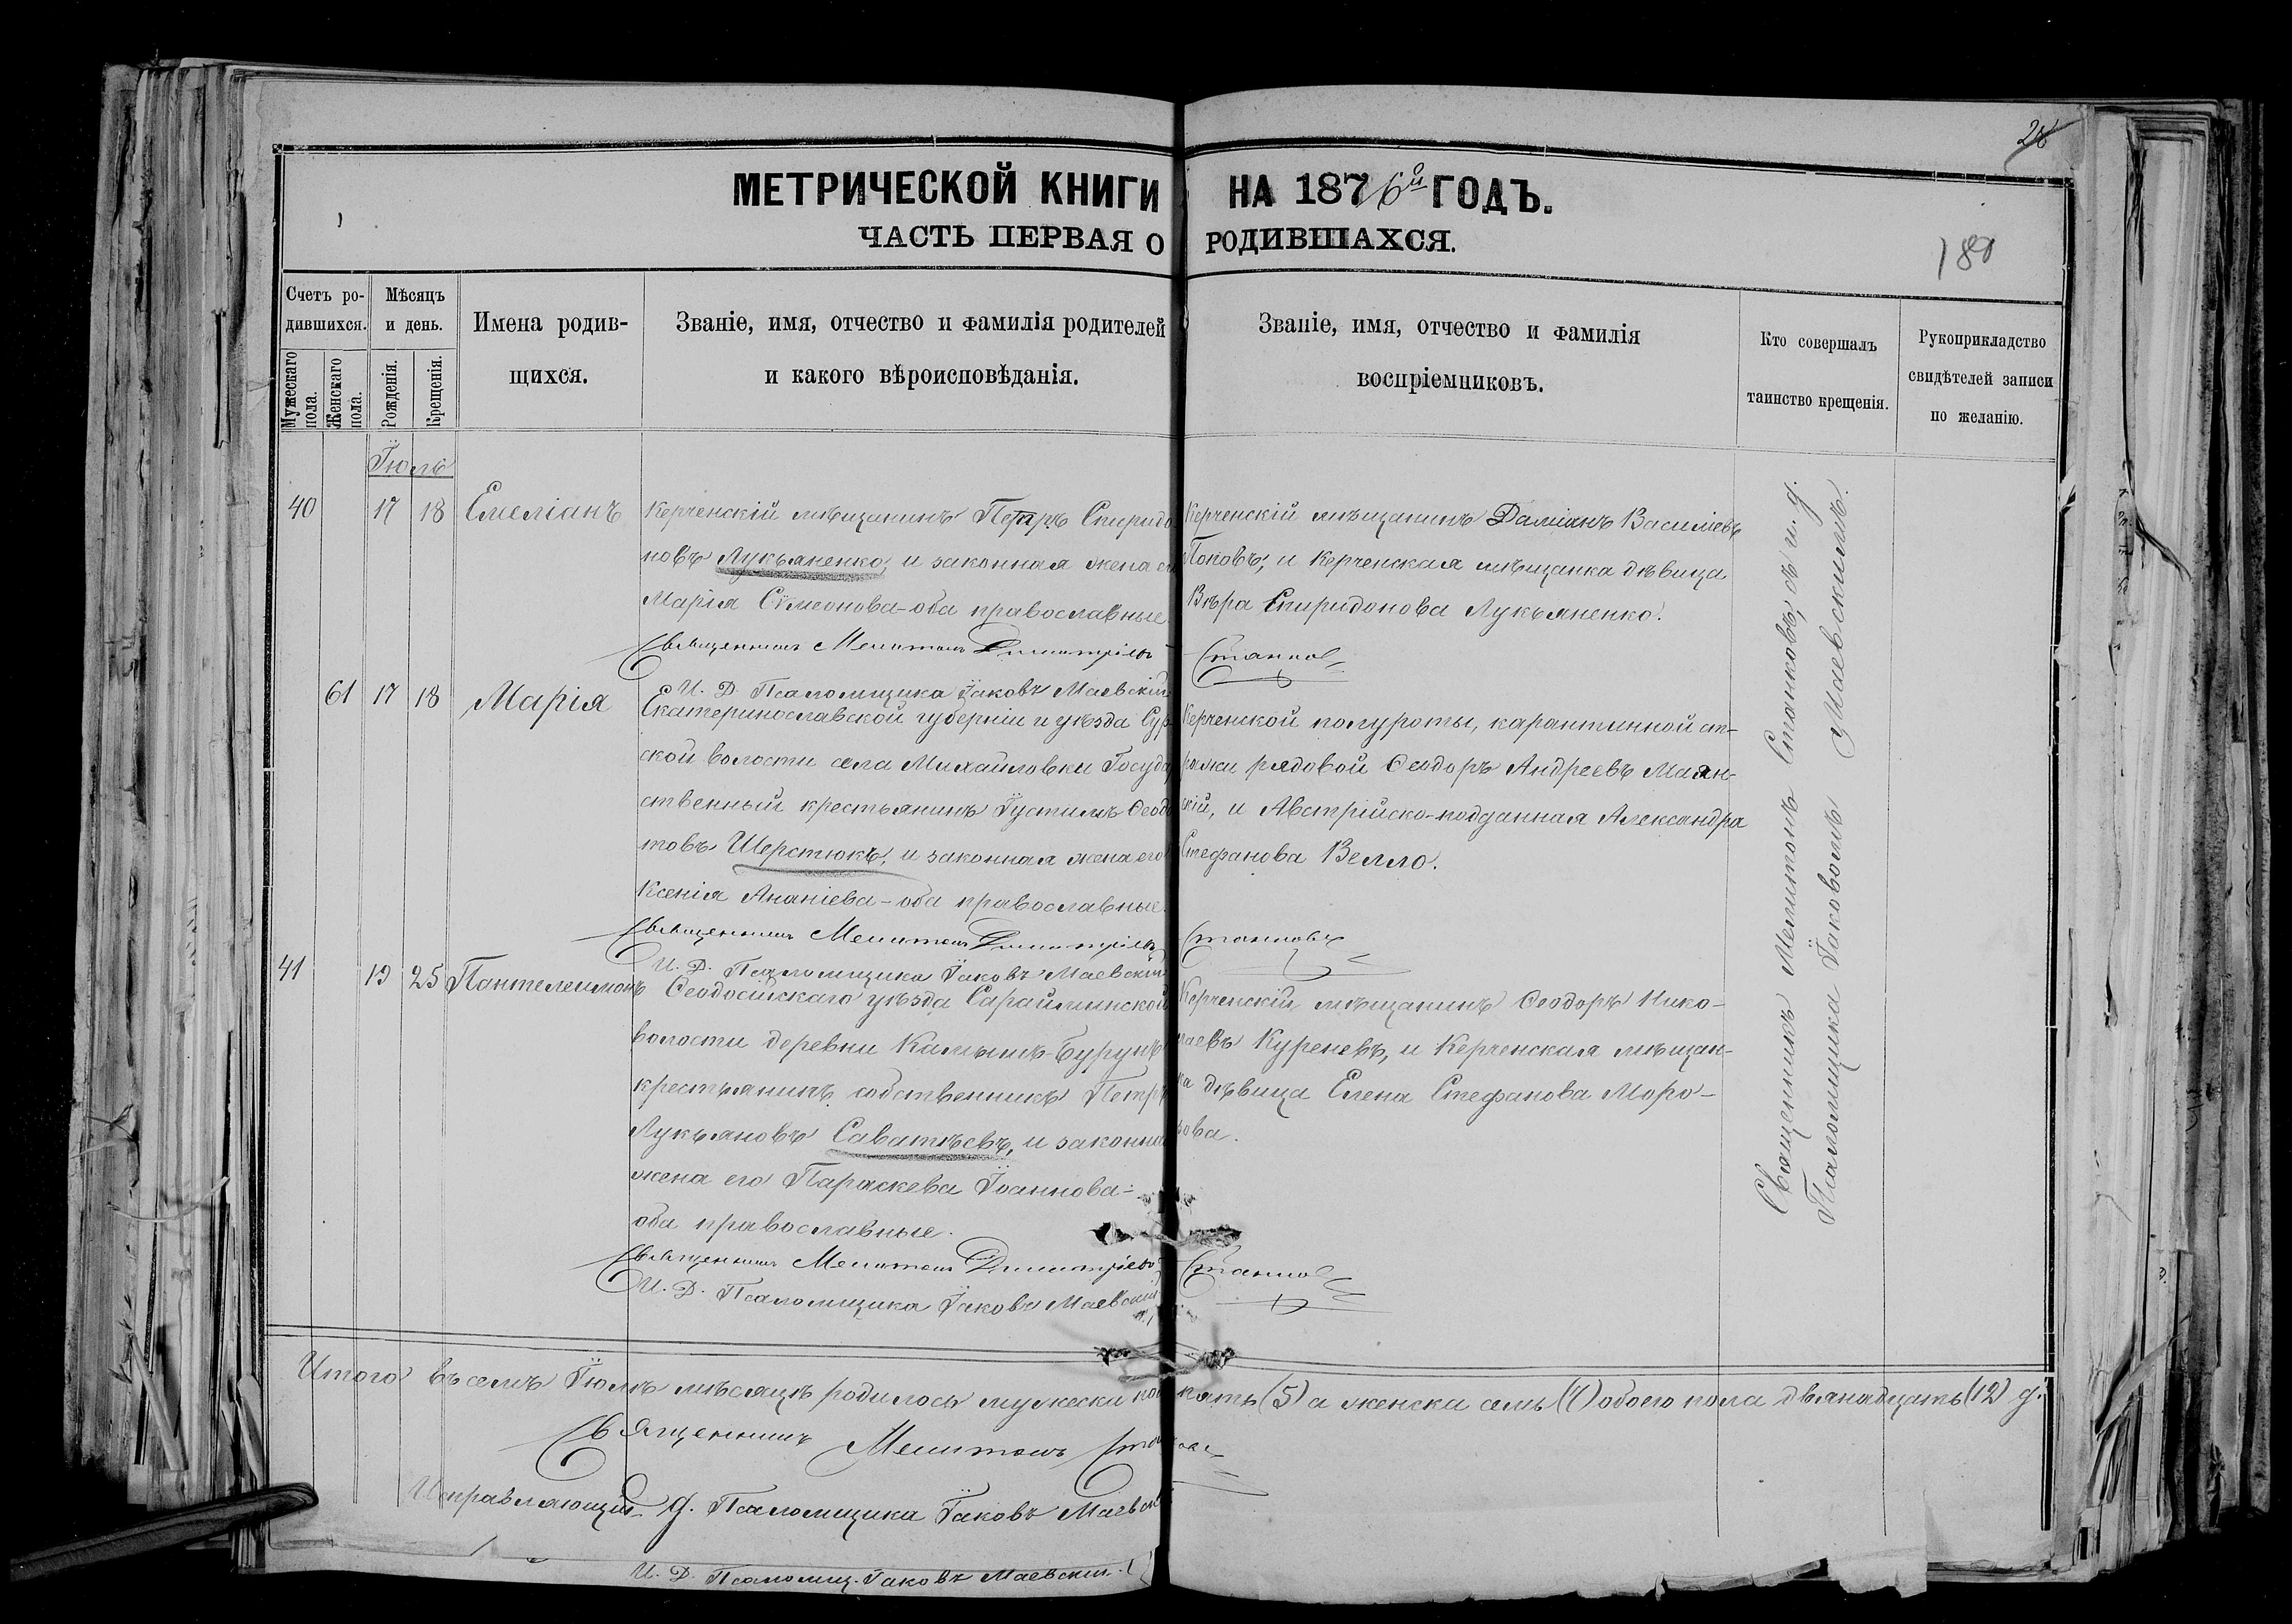 28
МЕТРИЧЕСКОЙ КНИГИ НА 1876й ГОДЪ.
ЧАСТЬ ПЕРВАЯ О РОДИВШАХСЯ.
180
Счетъ ро-
дившихся.
Мужескаго пола.
Женскаго пола.
Мѣсяцъ
и день.
Рожденія.
Крещенія.
Имена родив-
щихся.
Званіе, имя, отчество и фамилія родителей
и какого вѣроисповѣданія.
Званіе, имя, отчество и фамилія
воспріемниковъ.
Кто совершалъ
таинство крещенія.
Рукоприкладство
свидѣтелей записи
по желанію.
Іюль
40 17 18 Емеліанъ
Керченскій мѣщанинъ Петръ Спиридо
новъ Лукьяненко, и законная жена его
Марія Сѵмеонова - оба православные.
Священникъ Мелитонъ Димитріевъ Станков
И. Д. Псаломщика Іаковъ Маевскій
Керченскій мѣщанинъ Даміанъ Василіевъ
Поповъ, и Керченская мѣщанка дѣвица
Вѣра Спиридонова Лукьяненко.
61 17 18 Марія
Екатеринославской губерніи и уѣзда Сур-
ской волости села Михайловки Госуда
ственный крестьянинъ Іустинъ Ѳеодо
товъ Шерстюкъ, и законная жена его
Ксенія Ананіева - оба православные.
Священникъ Мелитонъ Димитріевъ Станковъ
И. Д. Псаломщика Іаковъ Маевскій
Керченской полуроты, карантинной ст-
ражи рядовой Ѳеодоръ Андреевъ Маян-
скій, и Австрійско-подданная Александра
Стефанова Велло.
41 19 25 Пантелеимонъ
Ѳеодосійскаго уѣзда Сарайминской
волости деревни Камышъ-Бурунъ
крестьянинъ собственникъ Петръ
Лукьяновъ Саватѣевъ, и законная
жена его Параскева Іоаннова -
оба православные.
Священникъ Мелитонъ Димитріевъ Станков
И. Д. Псаломщика Іаковъ Маевскій
Керченскій мѣщанинъ Ѳеодоръ Нико-
лаевъ Куреневъ, и Керченская мѣщан-
ка дѣвица Елена Стефанова Моро-
зова.
Священникъ Мелитонъ Станковъ, съ и. д.
Псаломщика Іаковомъ Маевскимъ.
Итого въ семъ Іюлѣ мѣсяцѣ родилось мужески пола пять (5) а женска семь (7) обоего пола двѣнадцать (12) д.
Священникъ Мелитонъ Станков
Исправляющій д. Псаломщика Іаковъ Маевск
И. Д. Псаломщ. Іаковъ Маевскій.